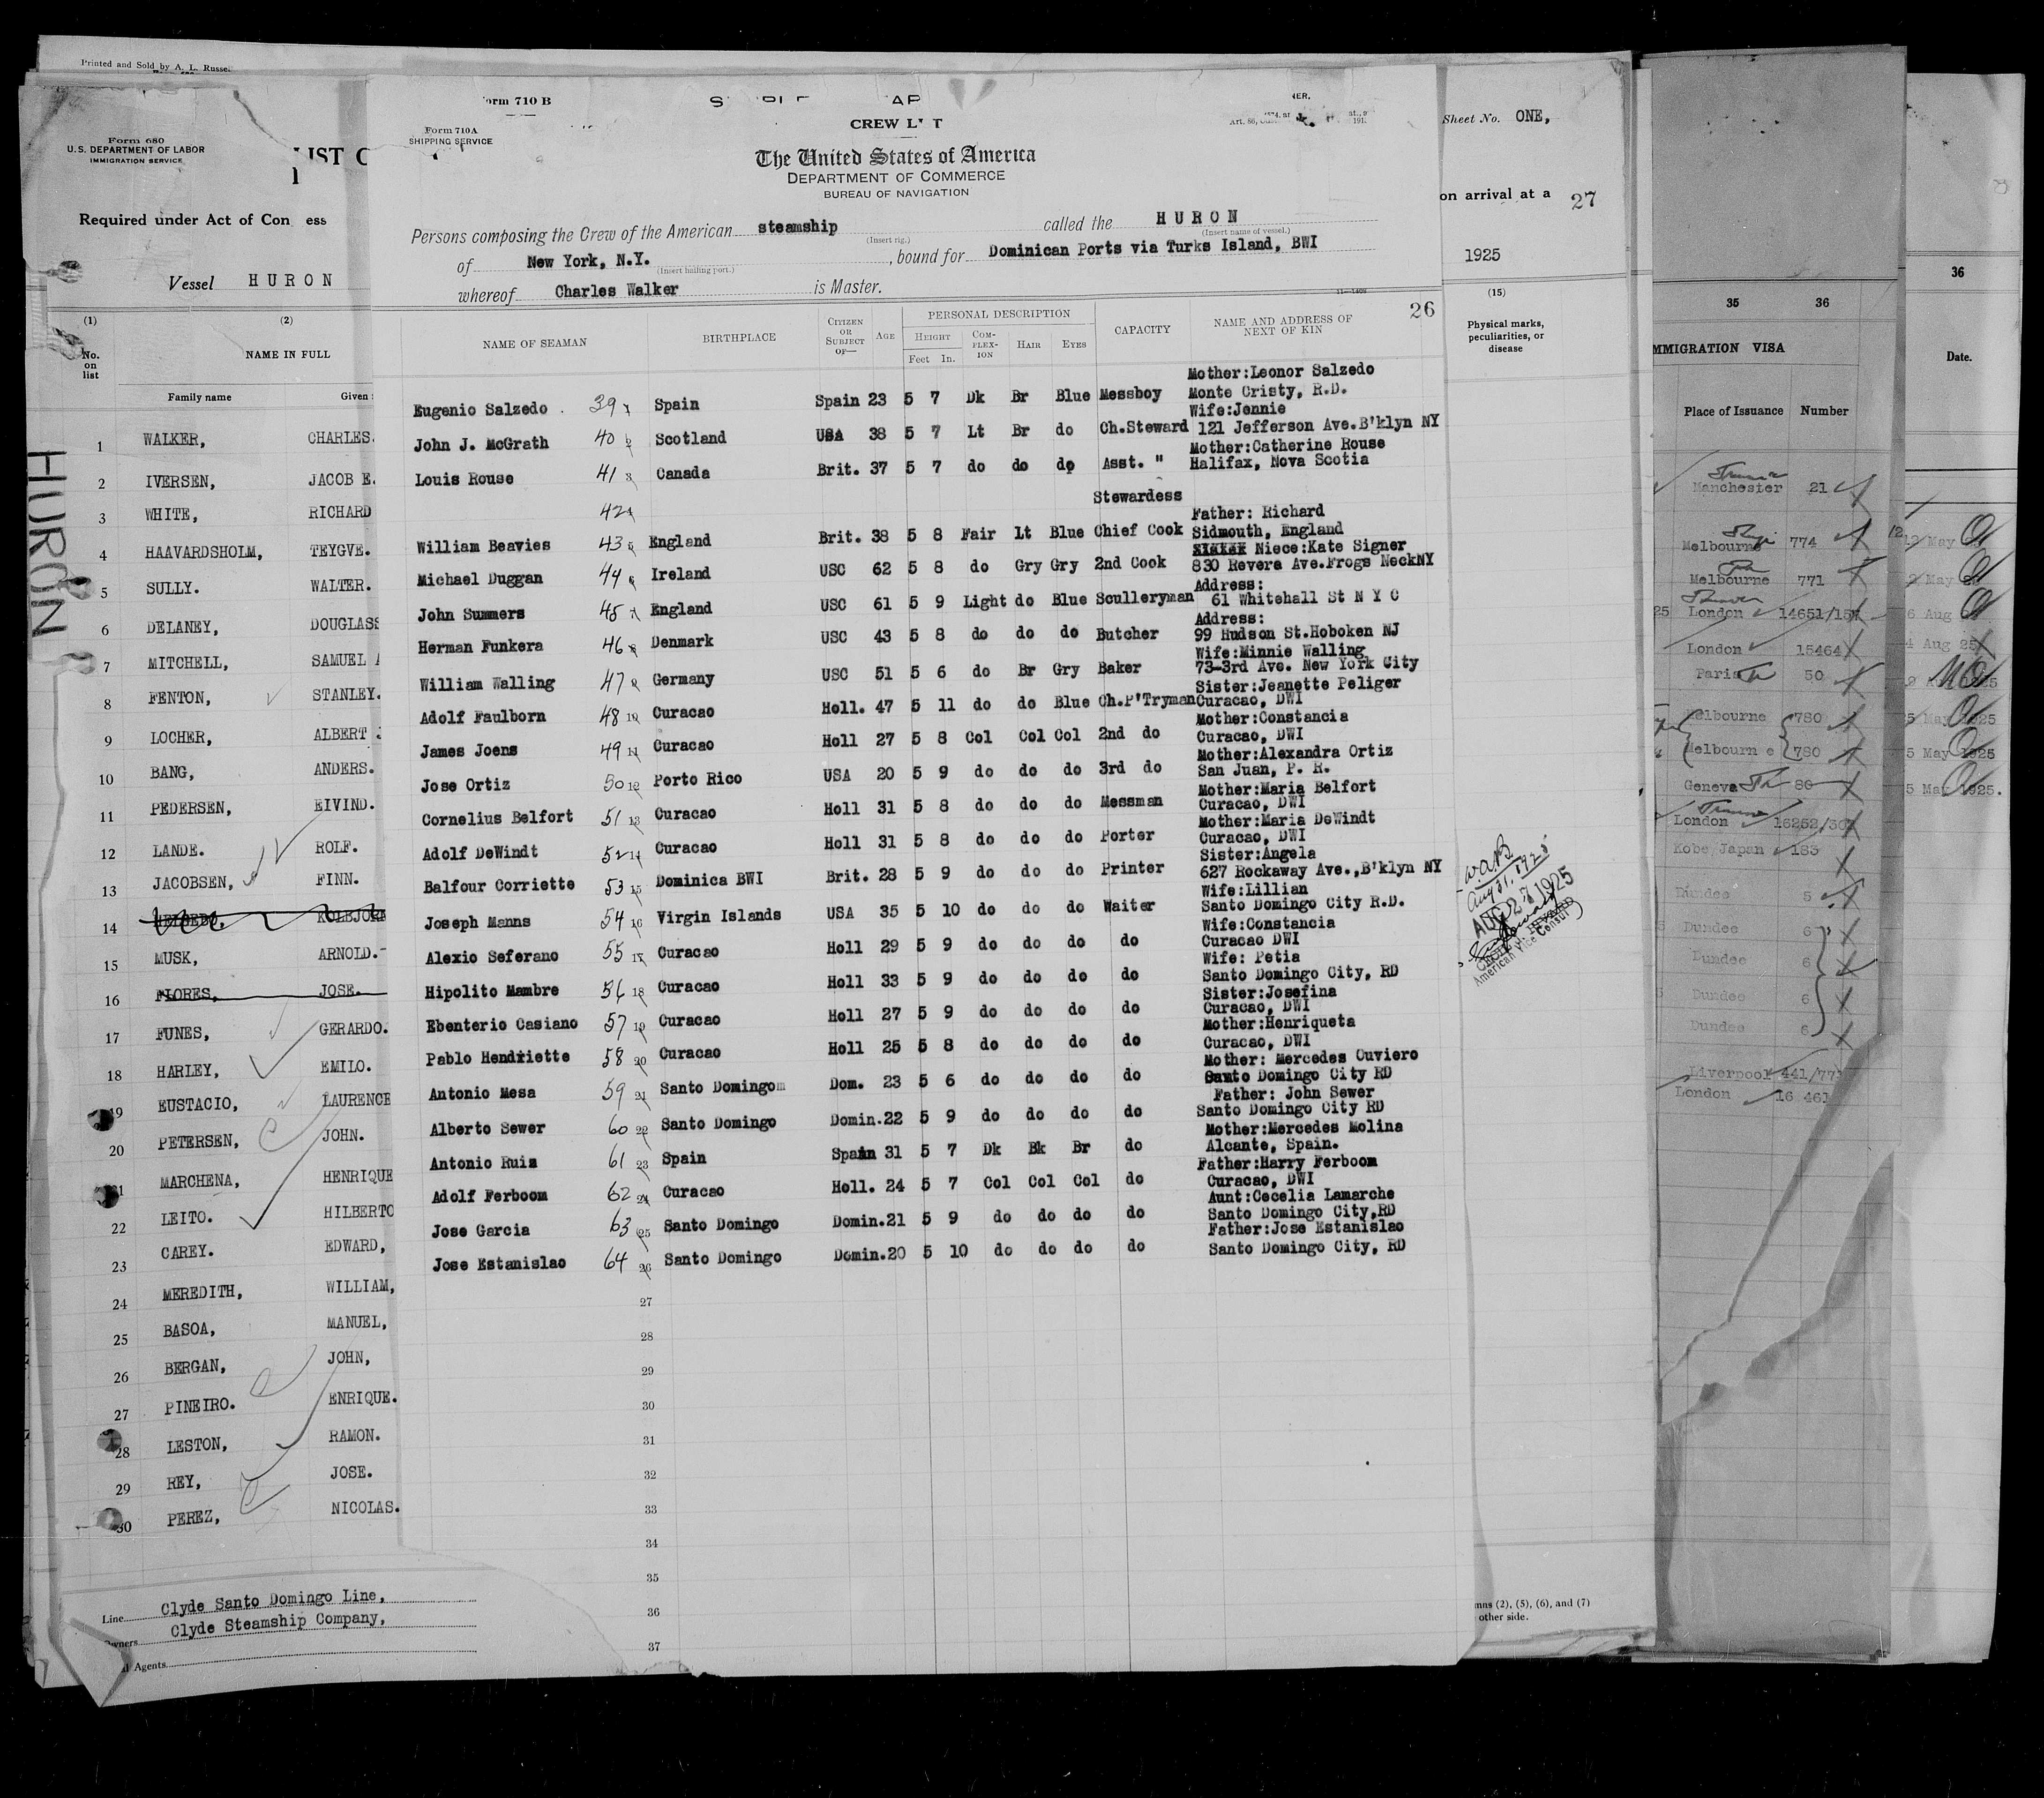 Printed and Sold by A. L. Russel
Form 680
U.S. DEPARTMENT OF LABOR
IMMIGRATION SERVICE
LIST O
Required under Act of Con ess
Vessel HURON
(1) (2)
No. on list
NAME IN FULL
Family name Given
HURON
1 WALKER, CHARLES.
2 IVERSEN, JACOB E.
3 WHITE, RICHARD
4 HAAVARDSHOLM, TEYGVE.
5 SULLY. WALTER.
6 DELANEY, DOUGLASS
7 MITCHELL, SAMUEL
8 FENTON, STANLEY.
9 LOCHER, ALBERT
10 BANG, ANDERS.
11 PEDERSEN, EIVIND.
12 LANDE. ROLF.
13 JACOBSEN, FINN.
14 KOLBJORN
15 MUSK, ARNOLD.
16 FLORES, JOSE.
17 FUNES, GERARDO.
18 HARLEY, EMILO.
19 EUSTACIO, LAURENCE
20 PETERSEN, JOHN.
21 MARCHENA, HENRIQUE
22 LEITO. HILBERTO
23 CAREY. EDWARD,
24 MEREDITH, WILLIAM,
25 BASOA, MANUEL,
26 BERGAN, JOHN,
27 PINEIRO. ENRIQUE.
28 LESTON, RAMON.
29 REY, JOSE.
30 PEREZ, NICOLAS.
Line Clyde Santo Domingo Line,
Owners Clyde Steamship Company,
l Agents
orm 710 B
Form 710A
SHIPPING SERVICE
CREW L T
The United States of America
DEPARTMENT OF COMMERCE
BUREAU OF NAVIGATION
Persons composing the Crew of the American steamship called the HURON
(Insert rig.) (Insert name of vessel.)
of New York, N.Y. , bound for Dominican Ports via Turks Island, BWI
(Insert hailing port.)
whereof Charles Walker is Master.
26
NAME OF SEAMAN BIRTHPLACE CITIZEN OR SUBJECT OF— AGE PERSONAL DESCRIPTION CAPACITY NAME AND ADDRESS OF NEXT OF KIN
HEIGHT COMPLEXION HAIR EYES
Feet In.
Mother:Leonor Salzedo
Eugenio Salzedo 39 1 Spain Spain 23 5 7 Dk Br Blue Messboy Monte Cristy, R.D.
Wife:Jennie
John J. McGrath 40 2 Scotland USA 38 5 7 Lt Br do Ch.Steward 121 Jefferson Ave.B'klyn NY
Mother:Catherine Rouse
Louis Rouse 41 3 Canada Brit. 37 5 7 do do do Asst. " Halifax, Nova Scotia
42 4 Stewardess
Father: Richard
William Beavies 43 5 England Brit. 38 5 8 Fair Lt Blue Chief Cook Sidmouth, England
Niece:Kate Signer
Michael Duggan 44 6 Ireland USC 62 5 8 do Gry Gry 2nd Cook 830 Revera Ave.Frogs NeckNY
Address:
John Summers 45 7 England USC 61 5 9 Light do Blue Sculleryman 61 Whitehall St N Y C
Address:
Herman Funkera 46 8 Denmark USC 43 5 8 do do do Butcher 99 Hudson St.Hoboken NJ
Wife:Minnie Walling
William Walling 47 9 Germany USC 51 5 6 do Br Gry Baker 73-3rd Ave. New York City
Sister:Jeanette Peliger
Adolf Faulborn 48 10 Curacao Holl. 47 5 11 do do Blue Ch.P'Tryman Curacao, DWI
Mother:Constancia
James Joens 49 11 Curacao Holl 27 5 8 Col Col Col 2nd do Curacao, DWI
Mother:Alexandra Ortiz
Jose Ortiz 50 12 Porto Rico USA 20 5 9 do do do 3rd do San Juan, P. R.
Mother:Maria Belfort
Cornelius Belfort 51 13 Curacao Holl 31 5 8 do do do Messman Curacao, DWI
Mother:Maria DeWindt
Adolf DeWindt 52 14 Curacao Holl 31 5 8 do do do Porter Curacao, DWI
Sister:Angela
Balfour Corriette 53 15 Dominica BWI Brit. 28 5 9 do do do Printer 627 Rockaway Ave.,B'klyn NY
Wife:Lillian
Joseph Manns 54 16 Virgin Islands USA 35 5 10 do do do Waiter Santo Domingo City R.D.
Wife:Constancia
Alexio Seferano 55 17 Curacao Holl 29 5 9 do do do do Curacao DWI
Wife: Petia
Hipolito Mambre 56 18 Curacao Holl 33 5 9 do do do do Santo Domingo City, RD
Sister:Josefina
Ebenterio Casiano 57 19 Curacao Holl 27 5 9 do do do do Curacao, DWI
Mother:Henriqueta
Pablo Hendriette 58 20 Curacao Holl 25 5 8 do do do do Curacao, DWI
Mother: Mercedes Ouviero
Antonio Mesa 59 21 Santo Domingom Dom. 23 5 6 do do do do Santo Domingo City RD
Father: John Sewer
Alberto Sewer 60 22 Santo Domingo Domin.22 5 9 do do do do Santo Domingo City RD
Mother:Mercedes Molina
Antonio Ruiz 61 23 Spain Spain 31 5 7 Dk Bk Br do Alcante, Spain.
Father:Harry Ferboom
Adolf Ferboom 62 24 Curacao Holl. 24 5 7 Col Col Col do Curacao, DWI
Aunt:Cecelia Lamarche
Jose Garcia 63 25 Santo Domingo Domin.21 5 9 do do do do Santo Domingo City,RD
Father:Jose Estanislao
Jose Estanislao 64 26 Santo Domingo Domin.20 5 10 do do do do Santo Domingo City, RD
27
28
29
30
31
32
33
34
35
36
37
Sheet No. ONE,
on arrival at a 27
1925
(15)
Physical marks, peculiarities, or disease
W.A.B
Aug 31, 1925
AUG 27 1925
American Vice Consul
mns (2), (5), (6), and (7)
other side.
35 36
MMIGRATION VISA
Place of Issuance Number
Manchester 21
Melbourne 774
Melbourne 771
London 14651/15
London 15464
Paris 50
Melbourne 780
Melbourne 780
Geneva 80
London 16252/30
Kobe Japan 183
Dundee 5
Dundee 6
Dundee 6
Dundee 6
Dundee 6
Liverpool 441/77
London 16 461
36
Date.
12 May
2 May 25
6 Aug
4 Aug 25
5 May 1925
5 May 1925
5 May 1925.